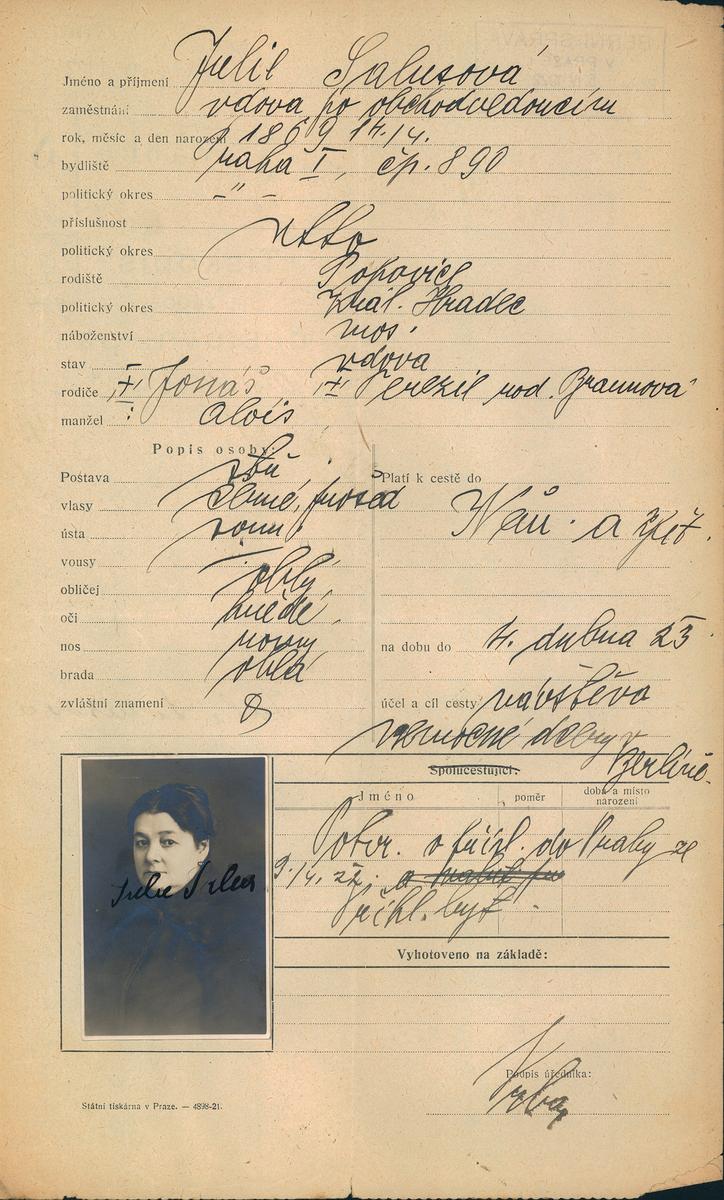 Jméno a příjmení Julie Salusová
zaměstnání vdova po obchodvedoucím
rok, měsíc a den narození 1869 14./4.
bydliště Praha I, čp. 890
politický okres -"-
příslušnost
politický okres
rodiště
politický okres Král. Hradec
náboženství mos.
stav vdova
rodiče Jonáš Terezie rod. Braunová
manžel: Alois
Popis osoby:
Postava stř.
vlasy černé, prošed
ústa
vousy —
obličej oblý
oči hnědé
nos
brada oblá
zvláštní znamení
Platí k cestě do
Něm. a zpět.
na dobu do 4. dubna 23
účel a cíl cesty návštěva
nemocné dcery v
Berlíně.
Spolucestující:
Jméno poměr doba a místo narození
Potvr. o přihl. do Prahy ze
9./4. 22.
přihl. byt.
Julie Salus
Vyhotoveno na základě:
Podpis úředníka:
Státní tiskárna v Praze. — 4898-21.